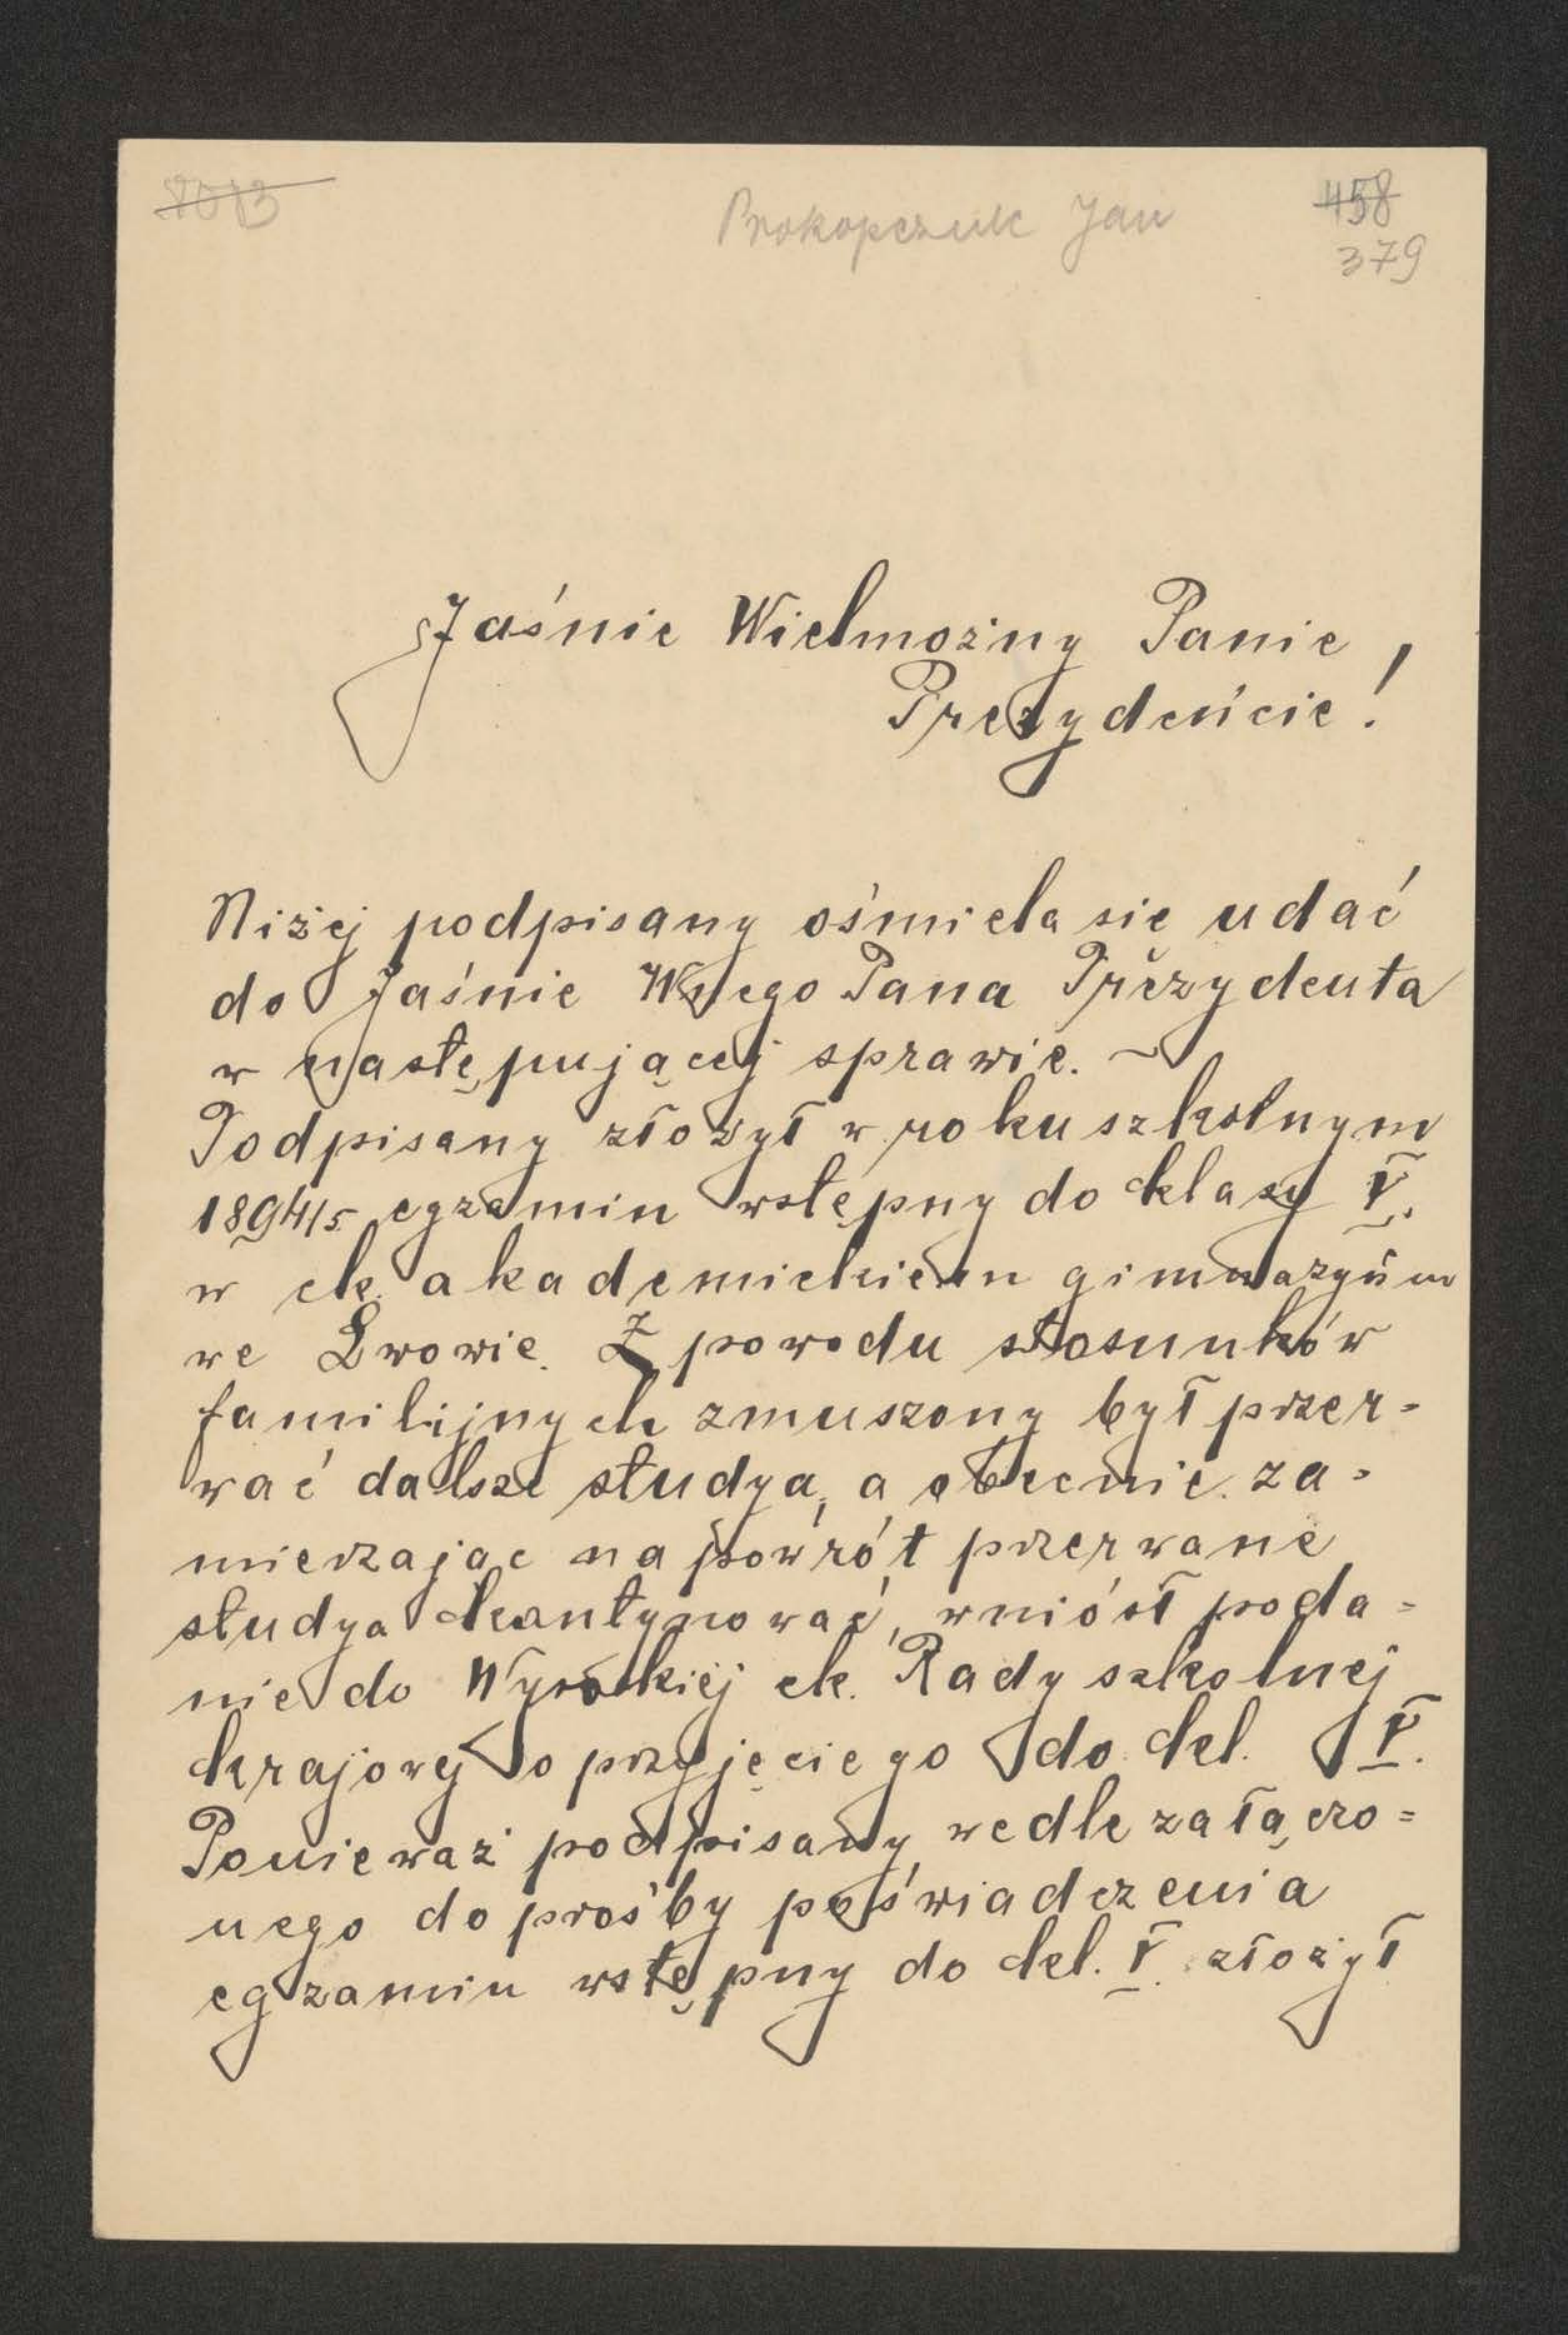 Prokopczuk Jan
458
379
Jaśnie Wielmożny Panie
Prezydeńcie!
Niżej podpisany ośmiela się udać
do Jaśnie Wnego Pana Prezydenta
w następującej sprawie. —
Podpisany złożył w roku szkolnym
1894/5 egzamin wstępny do klasy V.
w ck. akademickiem gimnazyum
we Lwowie. Z powodu stosunków
familijnych zmuszony był przer=
wać dalsze studya, a obecnie za=
mierzając napowrót przerwane
studya kontynować, wniósł poda=
nie do Wysokiej ck. Rady szkolnej
krajowej o przyjęcie go do kl. V.
Ponieważ podpisany wedle załączo=
nego do prośby poświadczenia
egzamin wstępny do kl. V. złożył